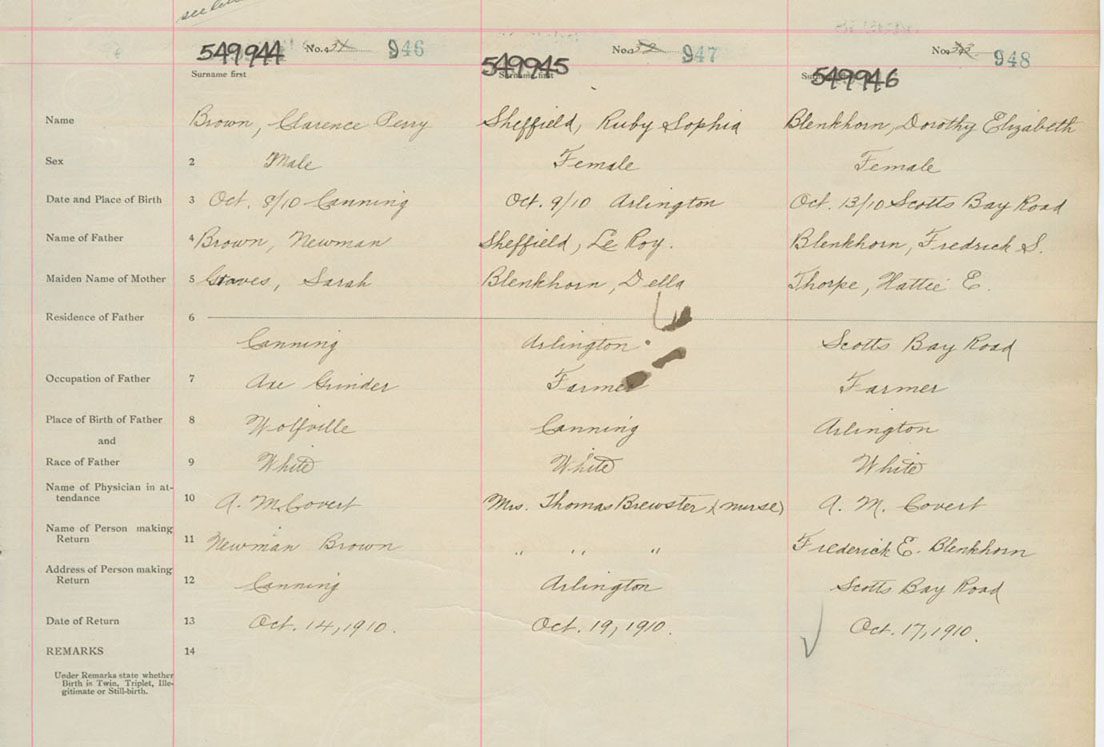 see
549944 No. 946 549945 No. 947 No. 948
Surname first Surname first 549946
Name Brown, Clarence Perry Sheffield, Ruby Sophia Blenkhorn, Dorothy Elizabeth
Sex 2 Male Female Female
Date and Place of Birth 3 Oct. 8/10 Canning Oct. 9/10 Arlington Oct. 13/10 Scotts Bay Road
Name of Father 4 Brown, Newman Sheffield, Le Roy. Blenkhorn, Fredrick S.
Maiden Name of Mother 5 Sarah Blenkhorn, Della Thorpe, Hattie E.
Residence of Father 6
Canning Arlington Scotts Bay Road
Occupation of Father 7 Axe Grinder Farmer Farmer
Place of Birth of Father 8 Wolfville Canning Arlington
and
Race of Father 9 White White White
Name of Physician in at-
tendance 10 A. M. Covert Mrs. Thomas Brewster (nurse) A. M. Covert
Name of Person making
Return 11 Newman Brown " " " Frederick E. Blenkhorn
Address of Person making
Return 12 Canning Arlington Scotts Bay Road
Date of Return 13 Oct. 14, 1910. Oct. 19, 1910. Oct. 17, 1910.
REMARKS 14
Under Remarks state whether
Birth is Twin, Triplet, Ille-
gitimate or Still-birth.